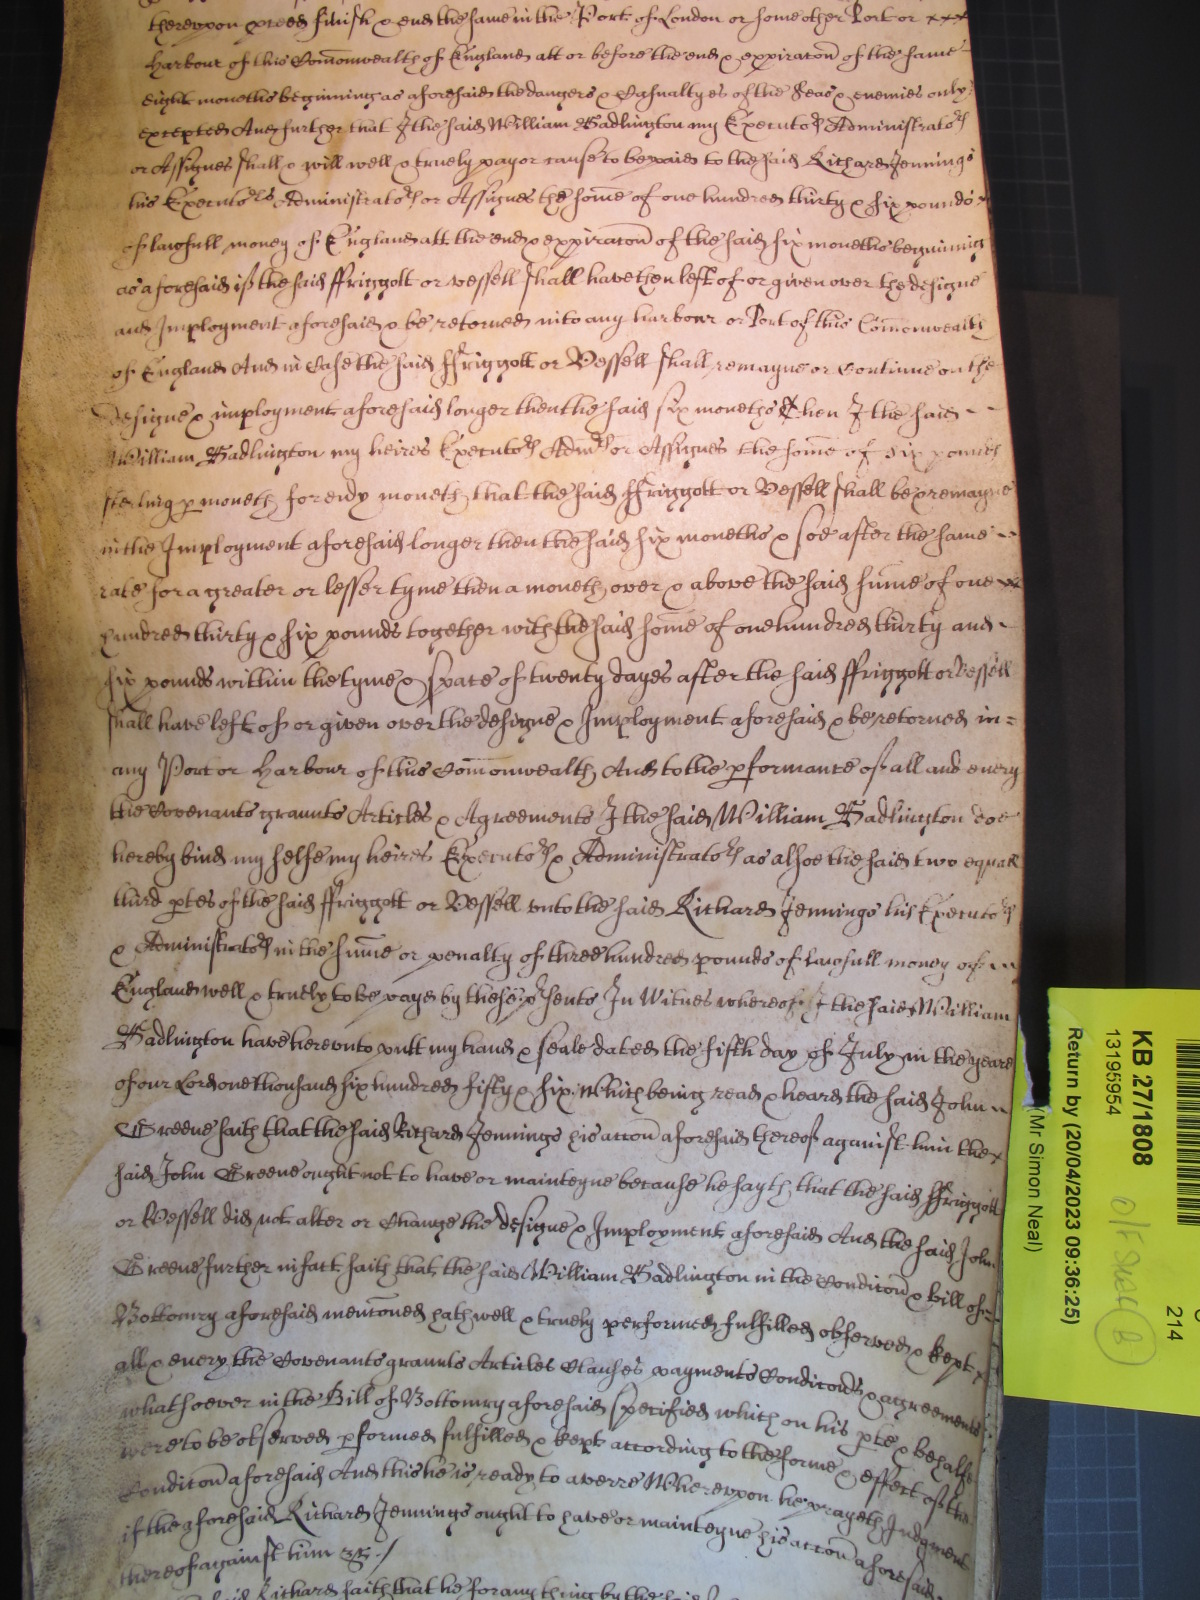 thereupon proceed finish & end the same in the Port of London or some other Port or xxx
Harbour of this Com̄onwealth of England att or before the end & expiratōn of the same
eight moneths beginning as aforesaid the dangers & Casualtyes of the Seas & enemies only
excepted And further that I the said William Badlington my Executors Administrators
or Assignes shall & will well & truely pay or cause to be paied to the said Richard Jennings
his Executors Administrators or Assignes the som̄e of one hundred thirty & six pounds
of lawfull money of England att the end & expiratōn of the said six moneths beginning
as aforesaid if the said ffriggott or vessell shall have then left of or given over the designe
and Imployment aforesaid & be retorned into any harbour or Port of this Com̄onwealth
of England And in Case the said ffriggott or Vessell shall remayne or Continue on the
designe & imployment aforesaid longer then the said six moneths Then I the said - -
William Badlington my heires Executors Admrs or Assignes the som̄e of six pounds
sterling p moneth for evry moneth that the said ffriggott or Vessell shall be & remayne
in the Imployment aforesaid longer then the said six moneths & soe after the same - -
rate for a greater or lesser tyme then a moneth over & above the said sum̄e of one
hundred thirty & six pounds together with the said som̄e of one hundred thirty and -
six pounds within the tyme & space of twenty dayes after the said ffriggott or Vessell
shall have left of or given over the designe & Imployment aforesaid & be retorned in =
any Port or Harbour of this Com̄onwealth And to the pformance of all and every
the Covenants graunts Articles & Agreements I the said William Badlington doe
hereby bind my selfe my heires Executors & Administrators as alsoe the said two equall
third ptes of the said ffriggott or Vessell unto the said Richard Jennings his Executors
& Administrators in the sum̄e or penalty of three hundred pounds of lawfull money of - -
England well & truely to be payd by these psents In Witnes whereof I the said William
Badlington have hereunto putt my hand & seale dated the fifth day of July in the yeare
of our Lord one thousand six hundred fifty & six. Which being read & heard the said John
Greene saith that the said Richard Jennings his accōn aforesaid thereof against him the
said John Greene ought not to have or mainteyne because he sayth that the said ffriggott
or Vessell did not alter or Change the designe & Imployment aforesaid And the said John
Greene further in fact saith that the said William Badlington in the Conditōn & bill of =
Bottomry aforesaid mentōned hath well & truely performed fulfilled observed & kept
all & every the Covenants graunts Articles Clauses payments Conditōns & agreements
whatsoever in the Bill of Bottomry aforesaid specified which on his pte & behalfe
were to be observed pformed fulfilled & kept according to the forme & effect of the
Conditōn aforesaid And this he is ready to averre Whereupon he prayeth Judgment
if the aforesaid Richard Jennings ought to have or mainteyne his accōn aforesaid
thereof against him &c./
said Richard saith that he for any thing by the said
KB 27/1808
13195954
Return by (20/04/2023 09:36:25)
(Mr Simon Neal)
214